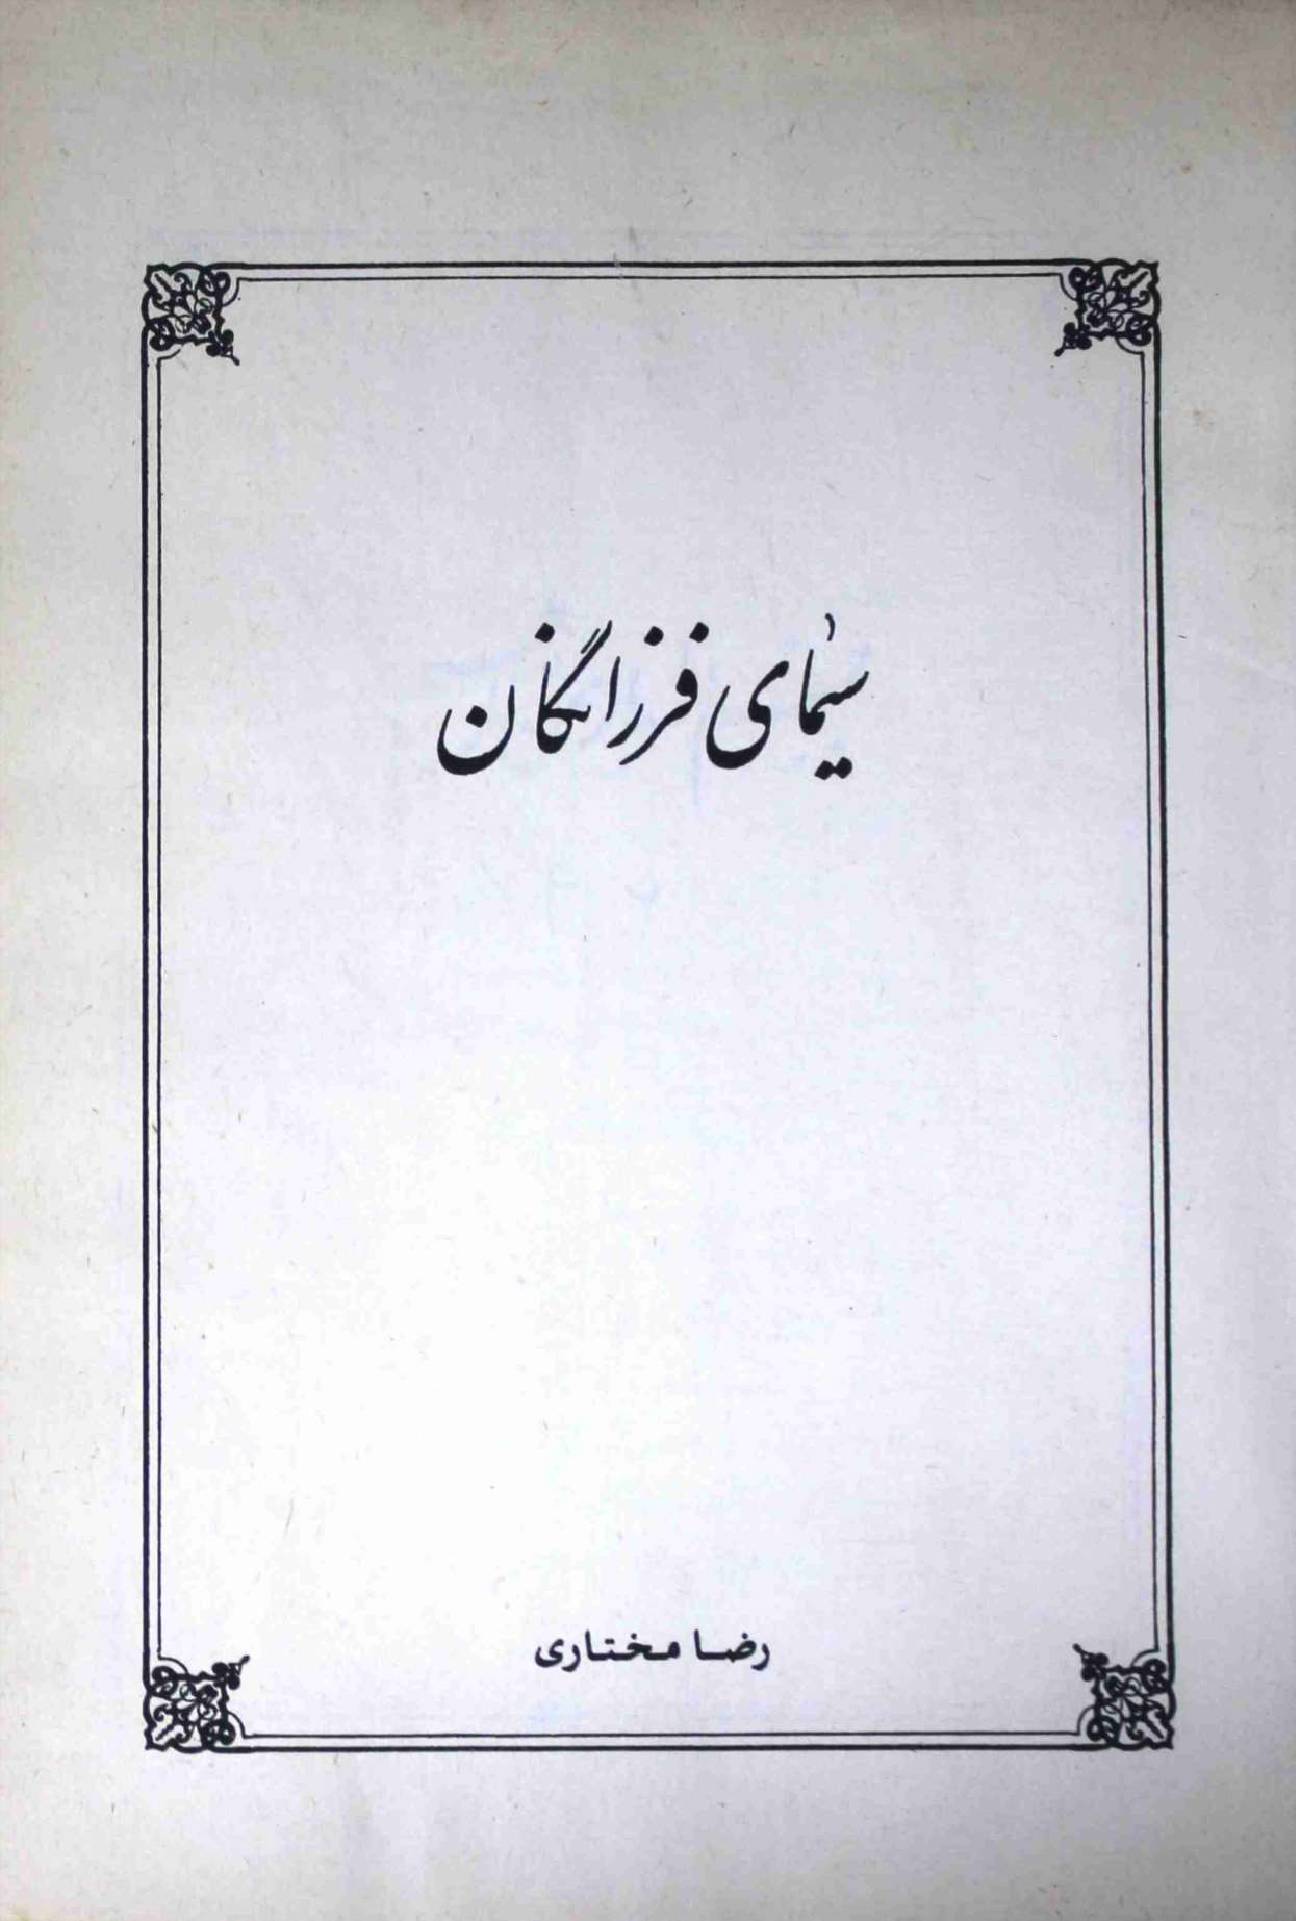 سیمای فرزانگان
رضا مختاری